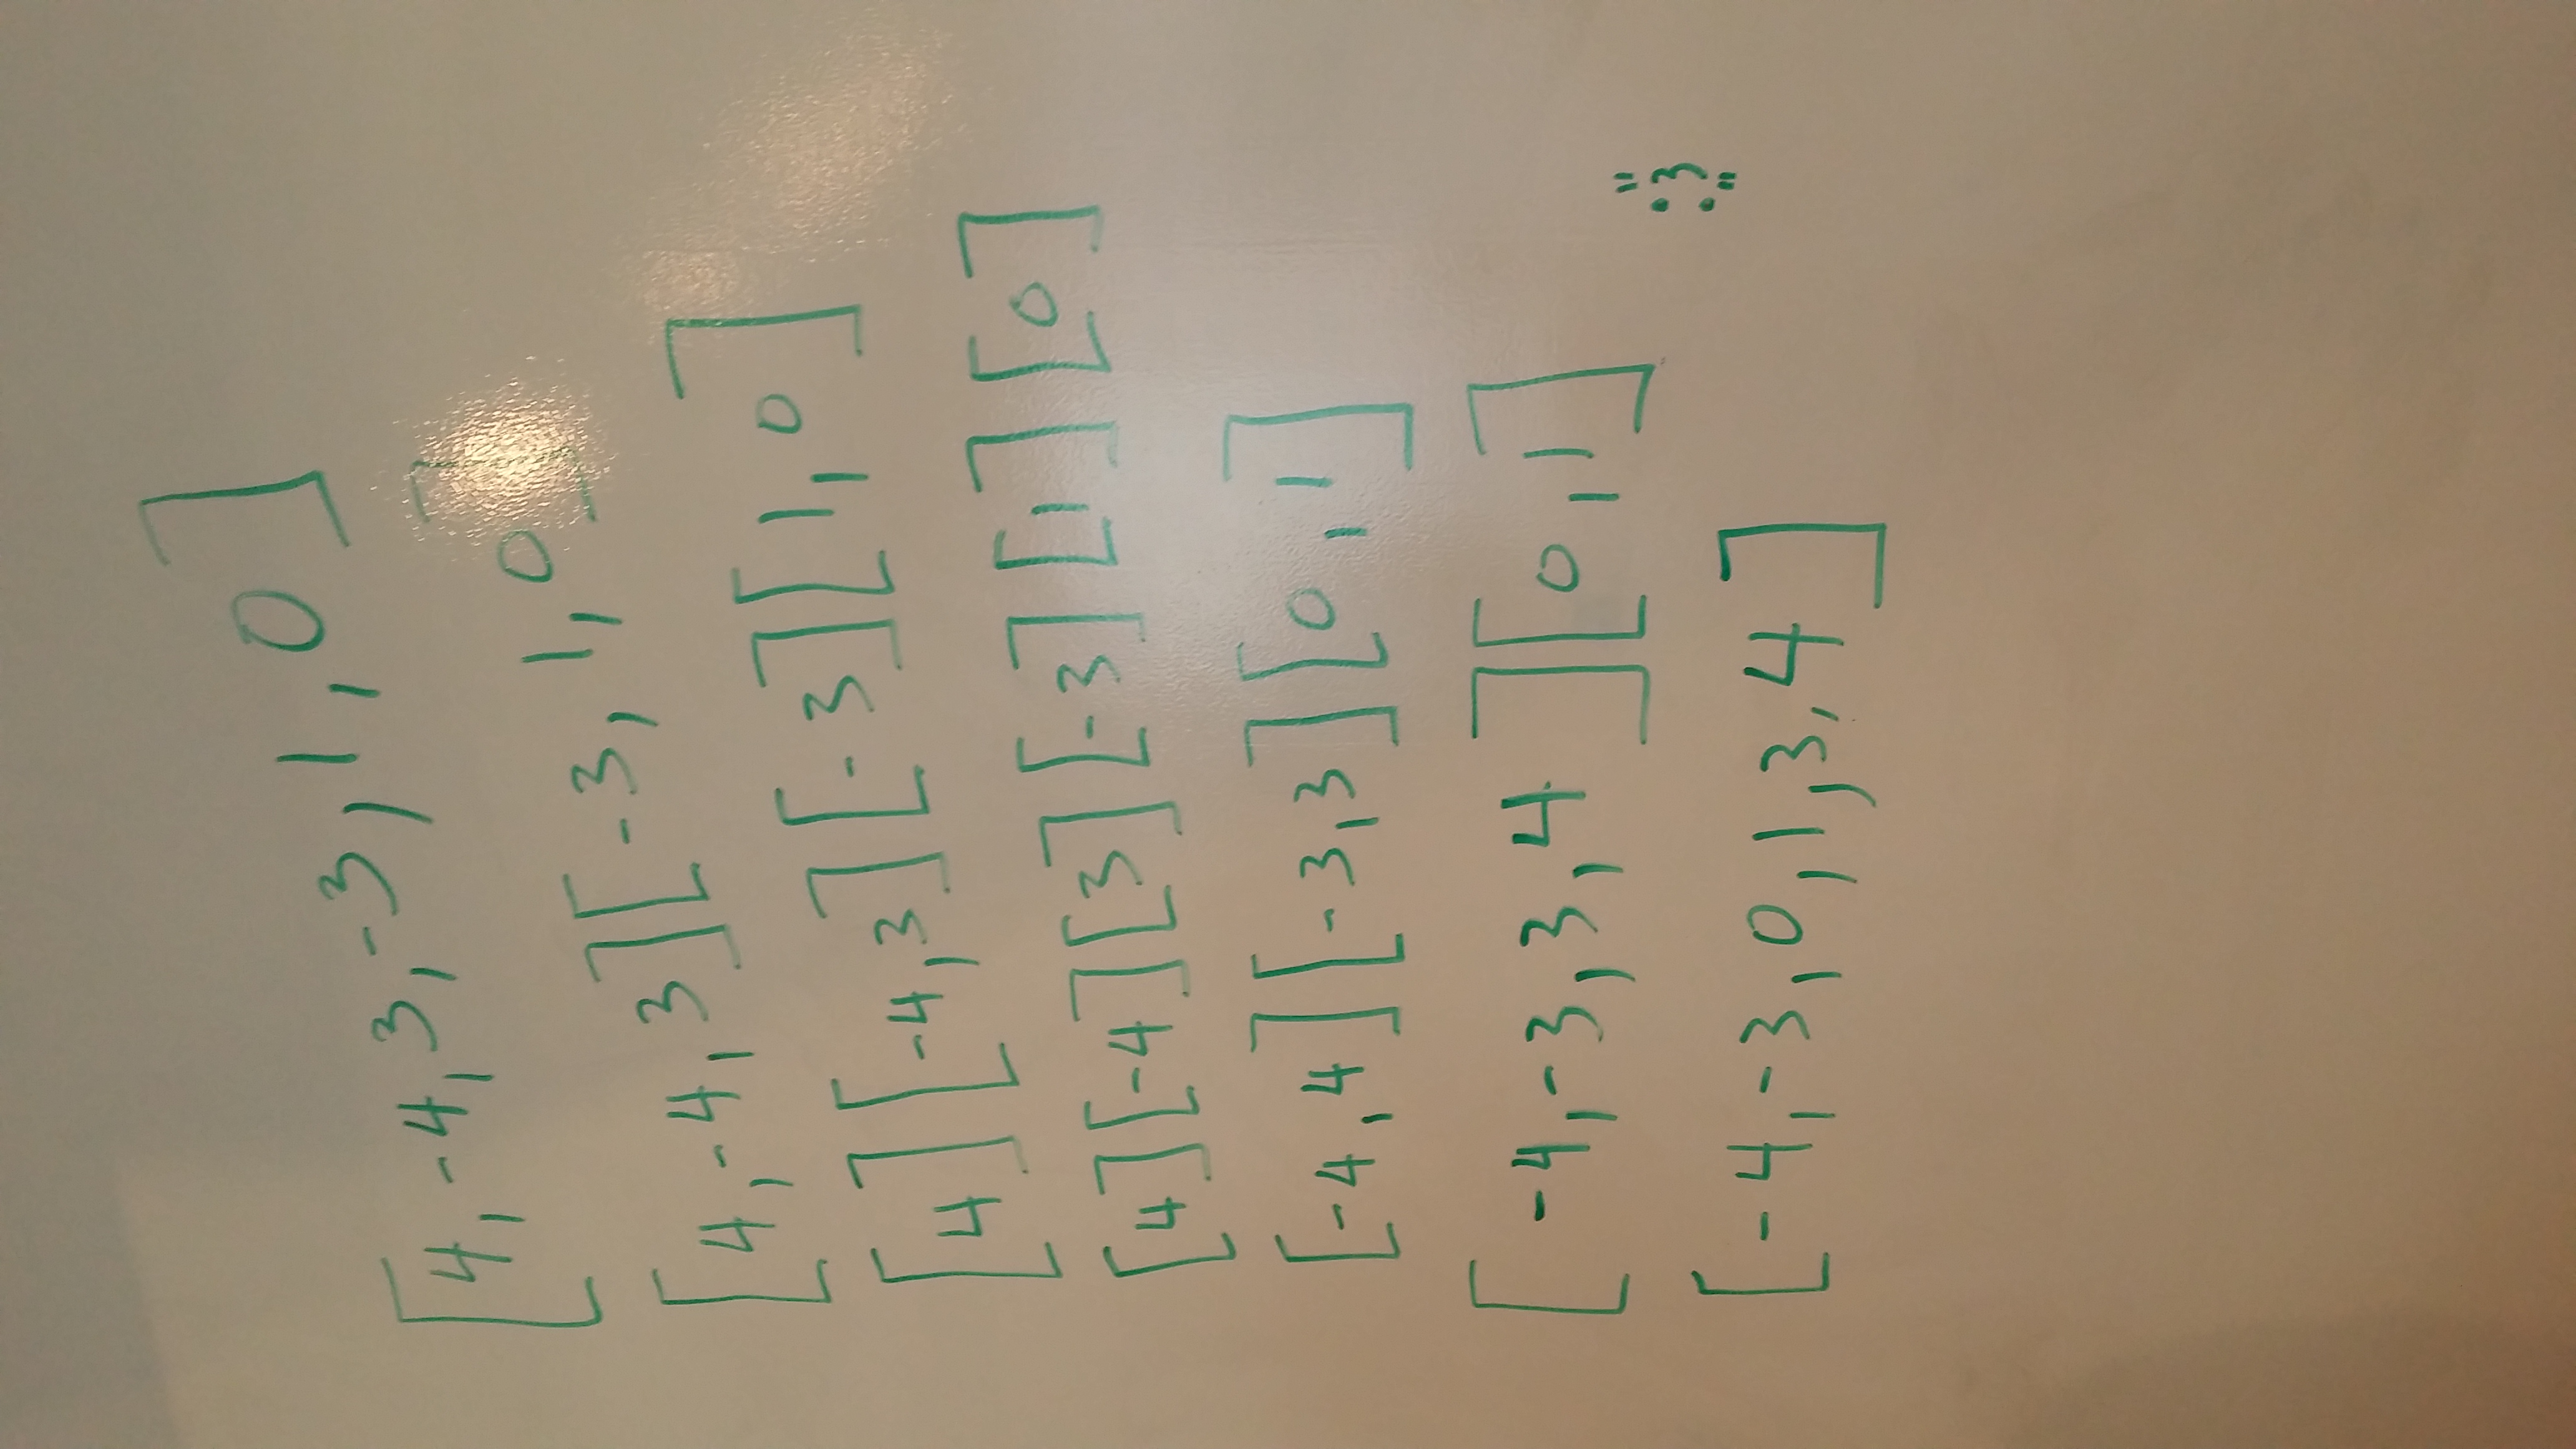 [4, -4, 3, -3, 1, 0]
[4, -4, 3][-3, 1, 0]
[4][-4, 3][-3][1, 0]
[4][-4][3][-3][1][0]
[-4, 4][-3, 3][0, 1]
[-4, -3, 3, 4][0, 1]
":3"
[-4, -3, 0, 1, 3, 4]